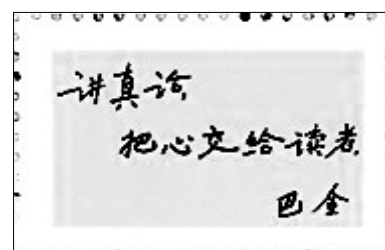 讲真话,
把心交给读者.
巴金